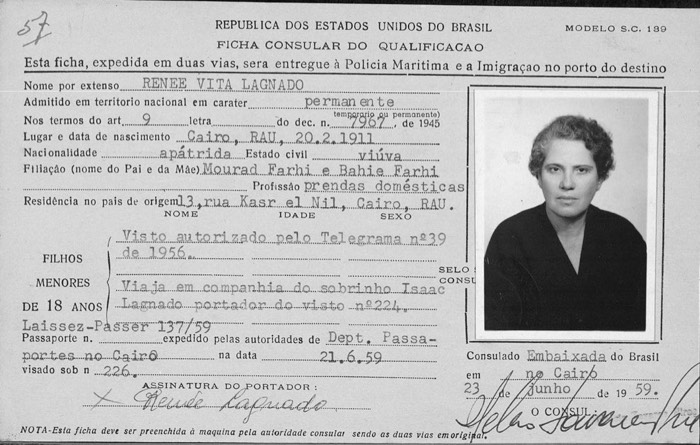 57
REPUBLICA DOS ESTADOS UNIDOS DO BRASIL
MODELO S.C. 139
FICHA CONSULAR DO QUALIFICACAO
Esta ficha, expedida em duas vias, sera entregue à Policia Maritima e a Imigraçao no porto do destino
Nome por extenso RENEE VITA LAGNADO
Admitido em territorio nacional em carater permanente
temporario ou permanente)
Nos termos do art. 9 letra do dec. n. 7967, de 1945
Lugar e data de nascimento Cairo, RAU, 20.2.1911
Nacionalidade apátrida Estado civil viúva
Filiação (nome do Pai e da Mãe) Mourad Farhi e Bahie Farhi
Profissão prendas domésticas
Residência no pais de origem 13, rua Kasr el Nil, Cairo, RAU.
NOME IDADE SEXO
FILHOS MENORES DE 18 ANOS
Visto autorizado pelo Telegrama nº39
de 1956.
Viaja em companhia do sobrinho Isaac
Lagnado portador do visto nº224.
SELO S
CONSU
Laissez-Passer 137/59
Passaporte n. expedido pelas autoridades de Dept. Passa-
portes no Cairo na data 21.6.59
visado sob n 226.
ASSINATURA DO PORTADOR :
x Renée Lagnado
Consulado Embaixada do Brasil
em no Cairo
23 de junho de 1959.
O CONSUL
NOTA-Esta ficha deve ser preenchida à maquina pela autoridade consular sendo as duas vias em original.